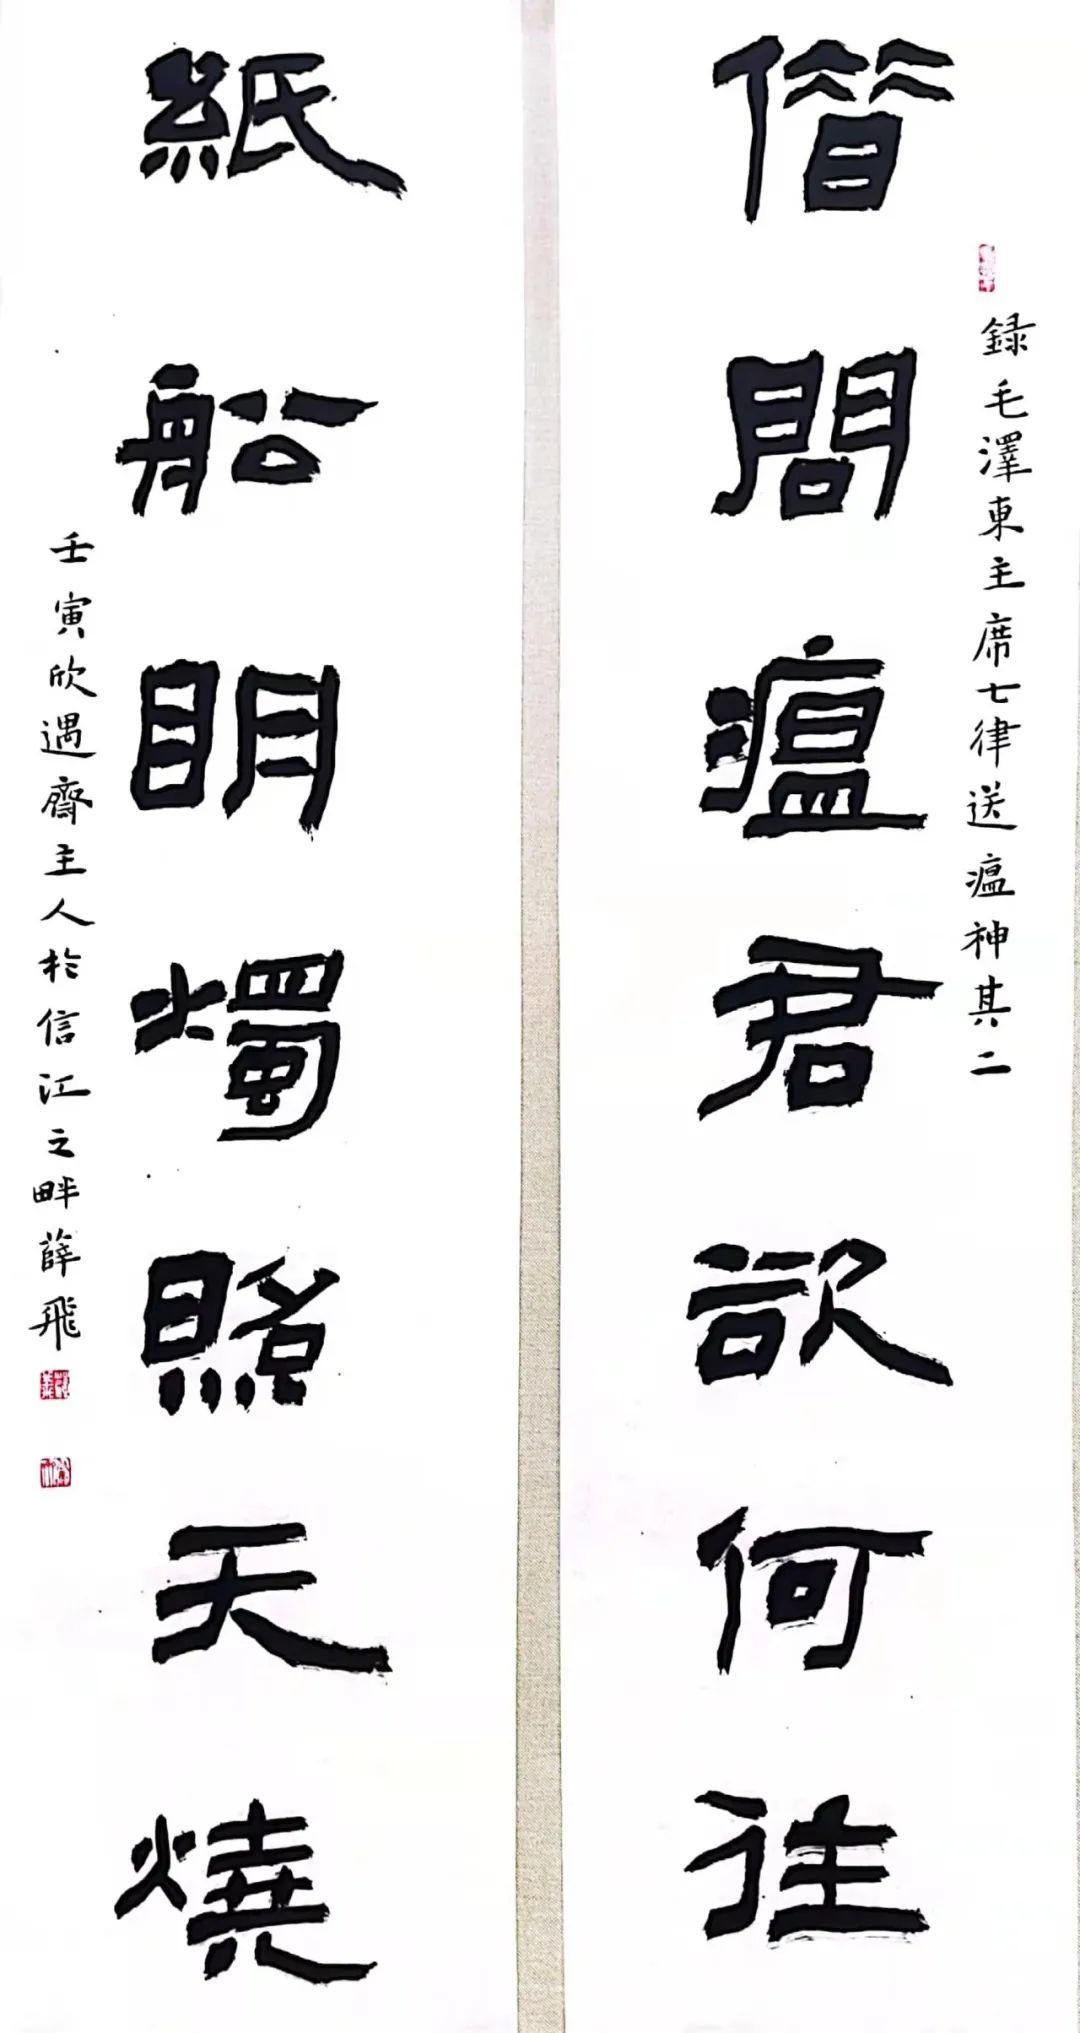 借問瘟君欲何往
録毛澤東主席七律送瘟神其二
紙船明燭照天燒
壬寅欣遇齋主人於信江之畔薛飛